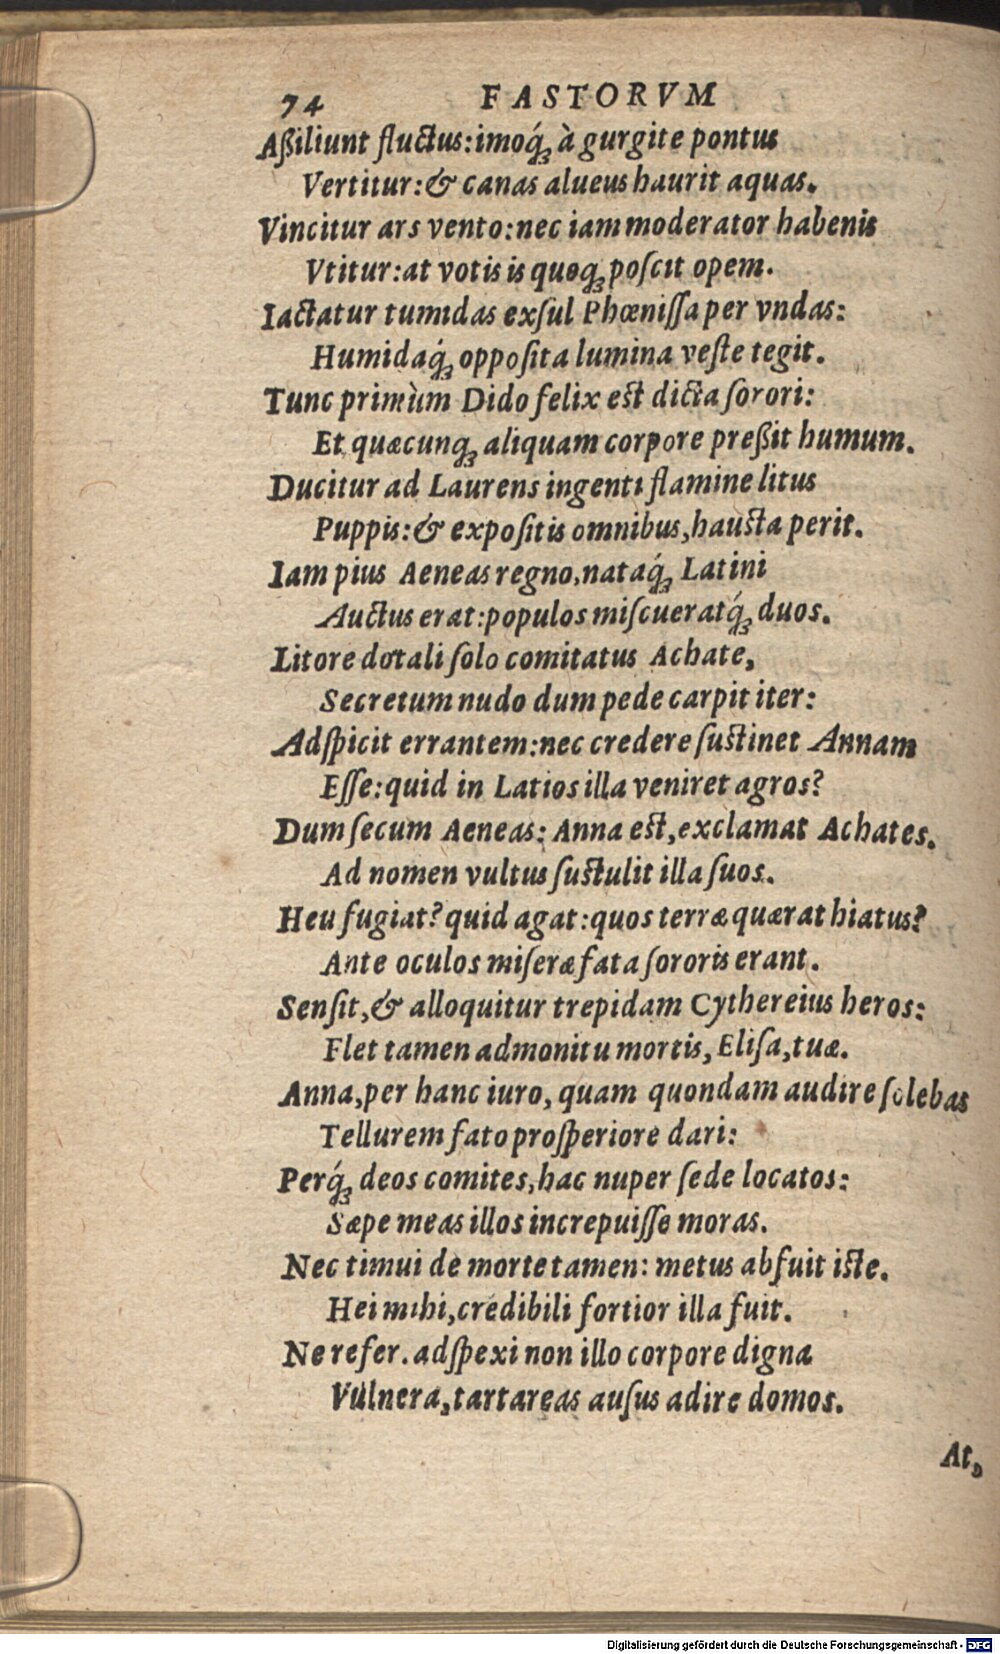 74 FASTORVM
Aßiliunt fluctus: imoq́ꝫ à gurgite pontus
Vertitur: & canas alueus haurit aquas.
Vincitur ars vento: nec iam moderator habenis
Vtitur: at votis is quoqꝫ poſcit opem.
Iactatur tumidas exſul Phœniſſa per vndas:
Humidaq́ꝫ oppoſita lumina veſte tegit.
Tunc primùm Dido felix eſt dicta ſorori:
Et quæcunqꝫ aliquam corpore preßit humum.
Ducitur ad Laurens ingenti flamine litus
Puppis: & expoſitis omnibus, hauſta perit.
Iam pius Aeneas regno, nataq́ꝫ Latini
Auctus erat: populos miſcueratq́ꝫ duos.
Litore dotali ſolo comitatus Achate,
Secretum nudo dum pede carpit iter:
Adſpicit errantem: nec credere ſuſtinet Annam
Eſſe: quid in Latios illa veniret agros?
Dum ſecum Aeneas: Anna eſt, exclamat Achates.
Ad nomen vultus ſuſtulit illa ſuos.
Heu fugiat? quid agat: quos terræ quærat hiatus?
Ante oculos miſeræ fata ſororis erant.
Senſit, & alloquitur trepidam Cythereius heros:
Flet tamen admonitu mortis, Eliſa, tuæ.
Anna, per hanc iuro, quam quondam audire ſolebas
Tellurem fato proſperiore dari:
Perq́ꝫ deos comites, hac nuper ſede locatos:
Sæpe meas illos increpuiſſe moras.
Nec timui de morte tamen: metus abfuit iſte.
Hei mihi, credibili fortior illa fuit.
Ne refer. adſpexi non illo corpore digna
Vulnera, tartareas auſus adire domos.
At,
Digitalisierung gefördert durch die Deutsche Forschungsgemeinschaft - DFG